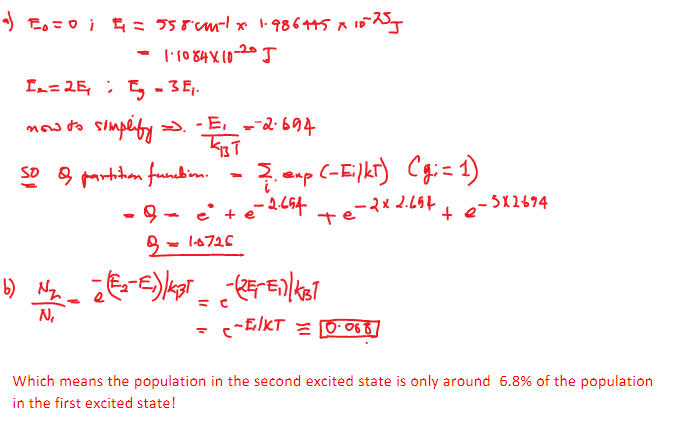 a) E₀ = 0 ; E₁ = 558 cm-1 x 1.986445 x 10-25J
= 1.1084X10-20 J
E₂ = 2E₁ ; E₃ = 3E₁.
now to simplify => -E₁/kBT = -2.694
SO Q partition function. = Σi exp (-Ei/kT) (gi = 1)
= Q = e° + e-2.694 + e-2x2.694 + e-3X2.694
Q = 1.0725
b) N₂/N₁ = e-(E₂-E₁)/kBT = e-(2E₁-E₁)/kBT
= e-E₁/KT ≡ 0.068
Which means the population in the second excited state is only around 6.8% of the population
in the first excited state!